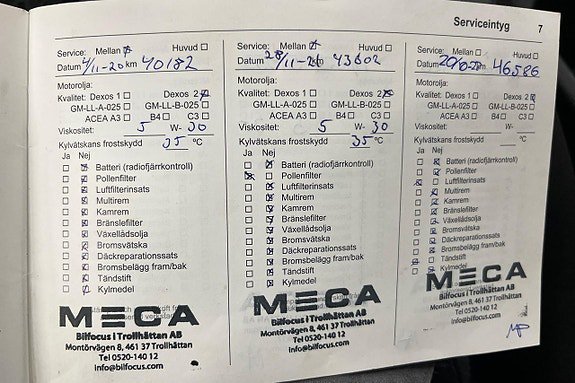 Serviceintyg 7
Service: Mellan Huvud
Datum 4/11-20 km 40182
Motorolja:
Kvalitet: Dexos 1 Dexos 2
GM-LL-A-025 GM-LL-B-025
ACEA A3 B4 C3
Viskositet: 5 W- 30
Kylvätskans frostskydd 35 °C
Ja Nej
Batteri (radiofjärrkontroll)
Pollenfilter
Luftfilterinsats
Multirem
Kamrem
Bränslefilter
Växellådsolja
Bromsvätska
Däckreparationssats
Bromsbelägg fram/bak
Tändstift
Kylmedel
MECA
Bilfocus i Trollhättan AB
Montörvägen 8, 461 37 Trollhättan
Tel 0520-140 12
info@bilfocus.com
Service: Mellan Huvud
Datum km 43602
Motorolja:
Kvalitet: Dexos 1 Dexos 2
GM-LL-A-025 GM-LL-B-025
ACEA A3 B4 C3
Viskositet: 5 W- 30
Kylvätskans frostskydd 35 °C
Ja Nej
Batteri (radiofjärrkontroll)
Pollenfilter
Luftfilterinsats
Multirem
Kamrem
Bränslefilter
Växellådsolja
Bromsvätska
Däckreparationssats
Bromsbelägg fram/bak
Tändstift
Kylmedel
MECA
Bilfocus i Trollhättan AB
Montörvägen 8, 461 37 Trollhättan
Tel 0520-140 12
info@bilfocus.com
Service: Mellan Huvud
Datum km 46586
Motorolja:
Kvalitet: Dexos 1 Dexos 2
GM-LL-A-025 GM-LL-B-025
ACEA A3 B4 C3
Viskositet: W-
Kylvätskans frostskydd °C
Ja Nej
Batteri (radiofjärrkontroll)
Pollenfilter
Luftfilterinsats
Multirem
Kamrem
Bränslefilter
Växellådsolja
Bromsvätska
Däckreparationssats
Bromsbelägg fram/bak
Tändstift
Kylmedel
MECA
Bilfocus i Trollhättan AB
Montörvägen 8, 461 37 Trollhättan
Tel 0520-140 12
info@bilfocus.com